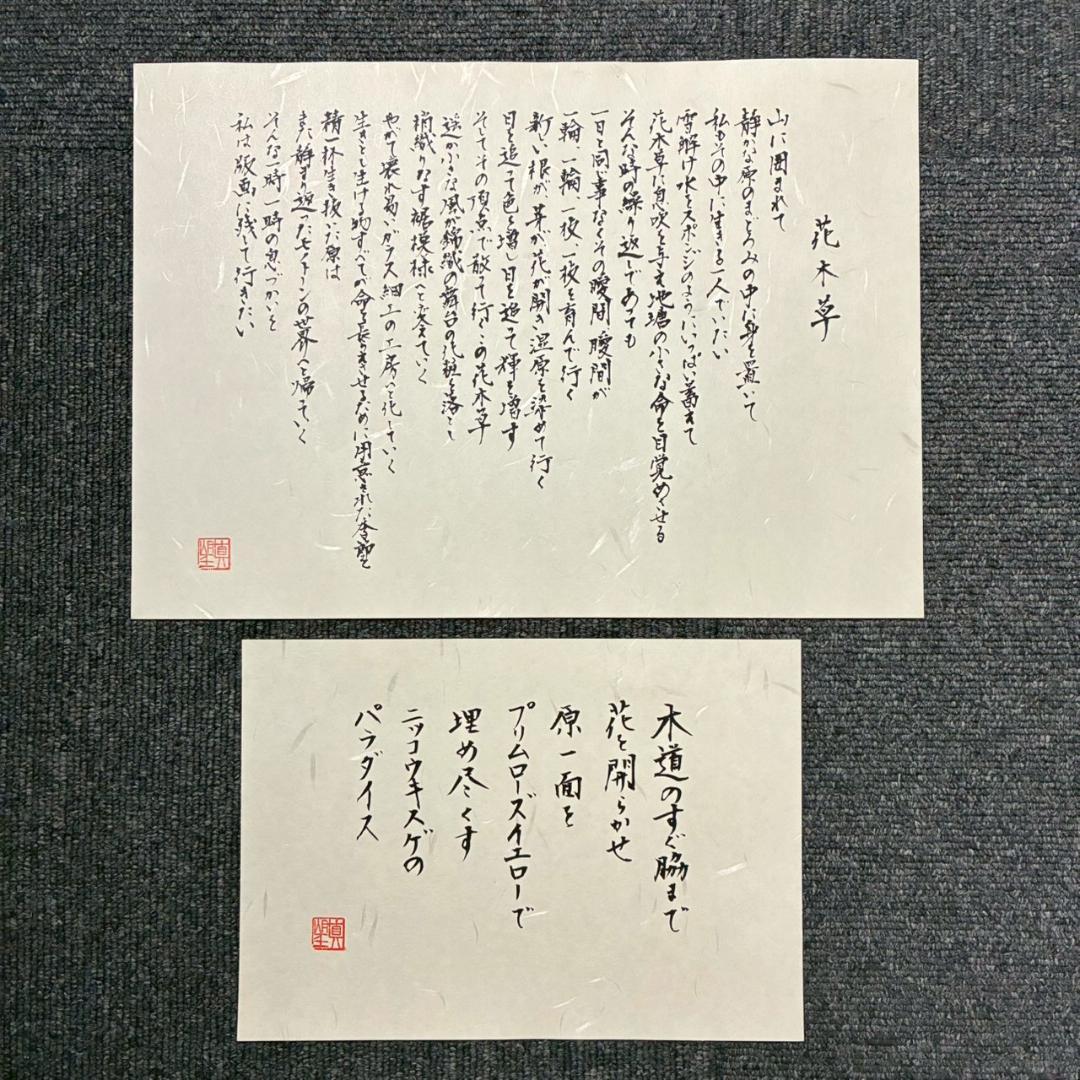 花木草
山に囲まれて
静かな原のまどろみの中に身を置いて
私もその中に生きる一人でいたい
雪解け水をスポンジのようにいっぱい蓄えて
花木草に息吹を与え池塘の小さな命を目覚めさせる
そんな時の繰り返しであっても
一日と同じ事なくその瞬間瞬間が
一輪、一輪、一夜、一夜を育んで行く
新しい根が、芽がが花が開き湿原を染めて行く
日を追って色を増し日を追って輝を増す
そしてその頂点で放って行くこの花木草
遥か小さな風が錦織の舞台の化粧を落とし
織りなす裾模様へと変えていく
やがて壊れ易いガラス細工の工房へと化していく
生きとし生ける物すべてが命を長らきさせるために用意された季節を
精一杯生き抜いた原は
また静まり返ったモノトーンの世界へと帰っていく
そんな一時一時の息づかいを
私は版画に残して行きたい
木道のすぐ脇まで
花を開らかせ
原一面を
プリムローズイエローで
埋め尽くす
ニッコウキスゲの
パラダイス